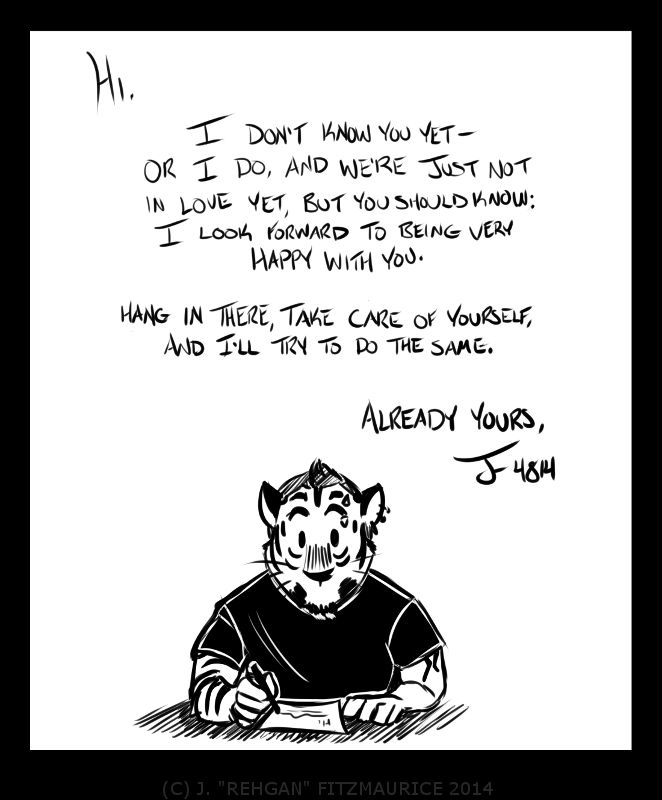 HI.
I DON'T KNOW YOU YET—
OR I DO, AND WE'RE JUST NOT
IN LOVE YET, BUT YOU SHOULD KNOW:
I LOOK FORWARD TO BEING VERY
HAPPY WITH YOU.
HANG IN THERE, TAKE CARE OF YOURSELF,
AND I'LL TRY TO DO THE SAME.
ALREADY YOURS,
J- 4814
(C) J. "REHGAN" FITZMAURICE 2014